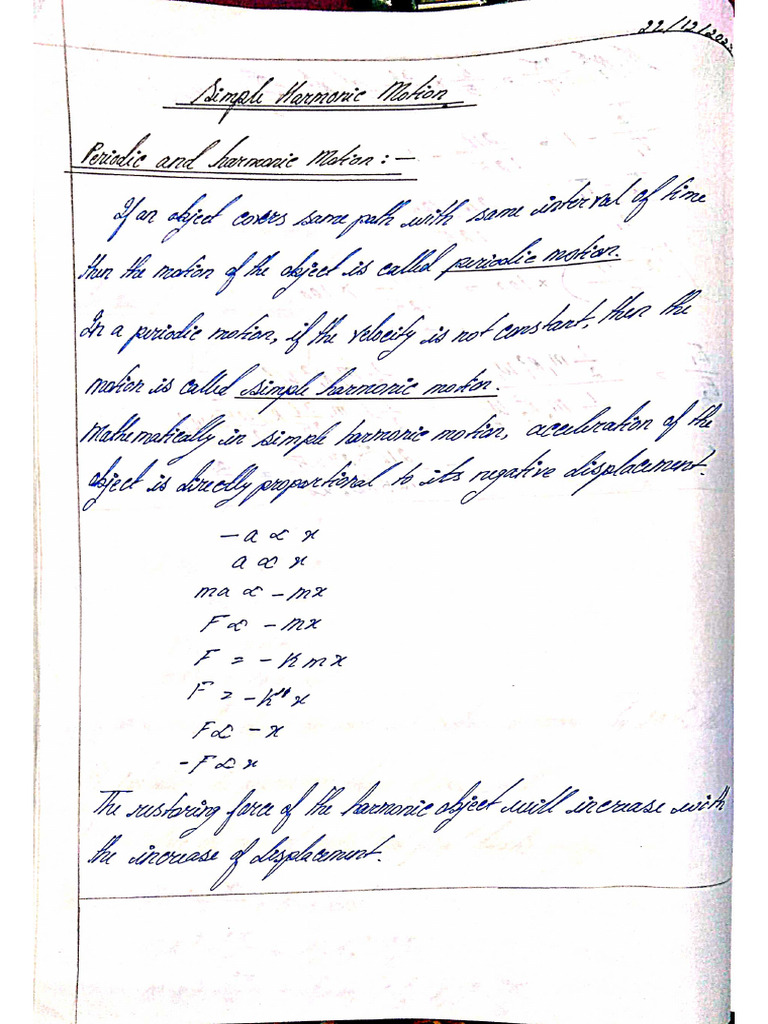 22/12/202
Simple Harmonic Motion
Periodic and harmonic Motion :-
If an object covers same path with same interval of time
then the motion of the object is called periodic motion.
In a periodic motion, if the velocity is not constant, then the
motion is called simple harmonic motion.
Mathematically in simple harmonic motion, acceleration of the
object is directly proportional to its negative displacement.
-a ∝ x
a ∝ x
ma ∝ -mx
F ∝ -mx
F = -Kmx
F = -K" x
F ∝ -x
-F ∝ x
The restoring force of the harmonic object will increase with
the increase of displacement.